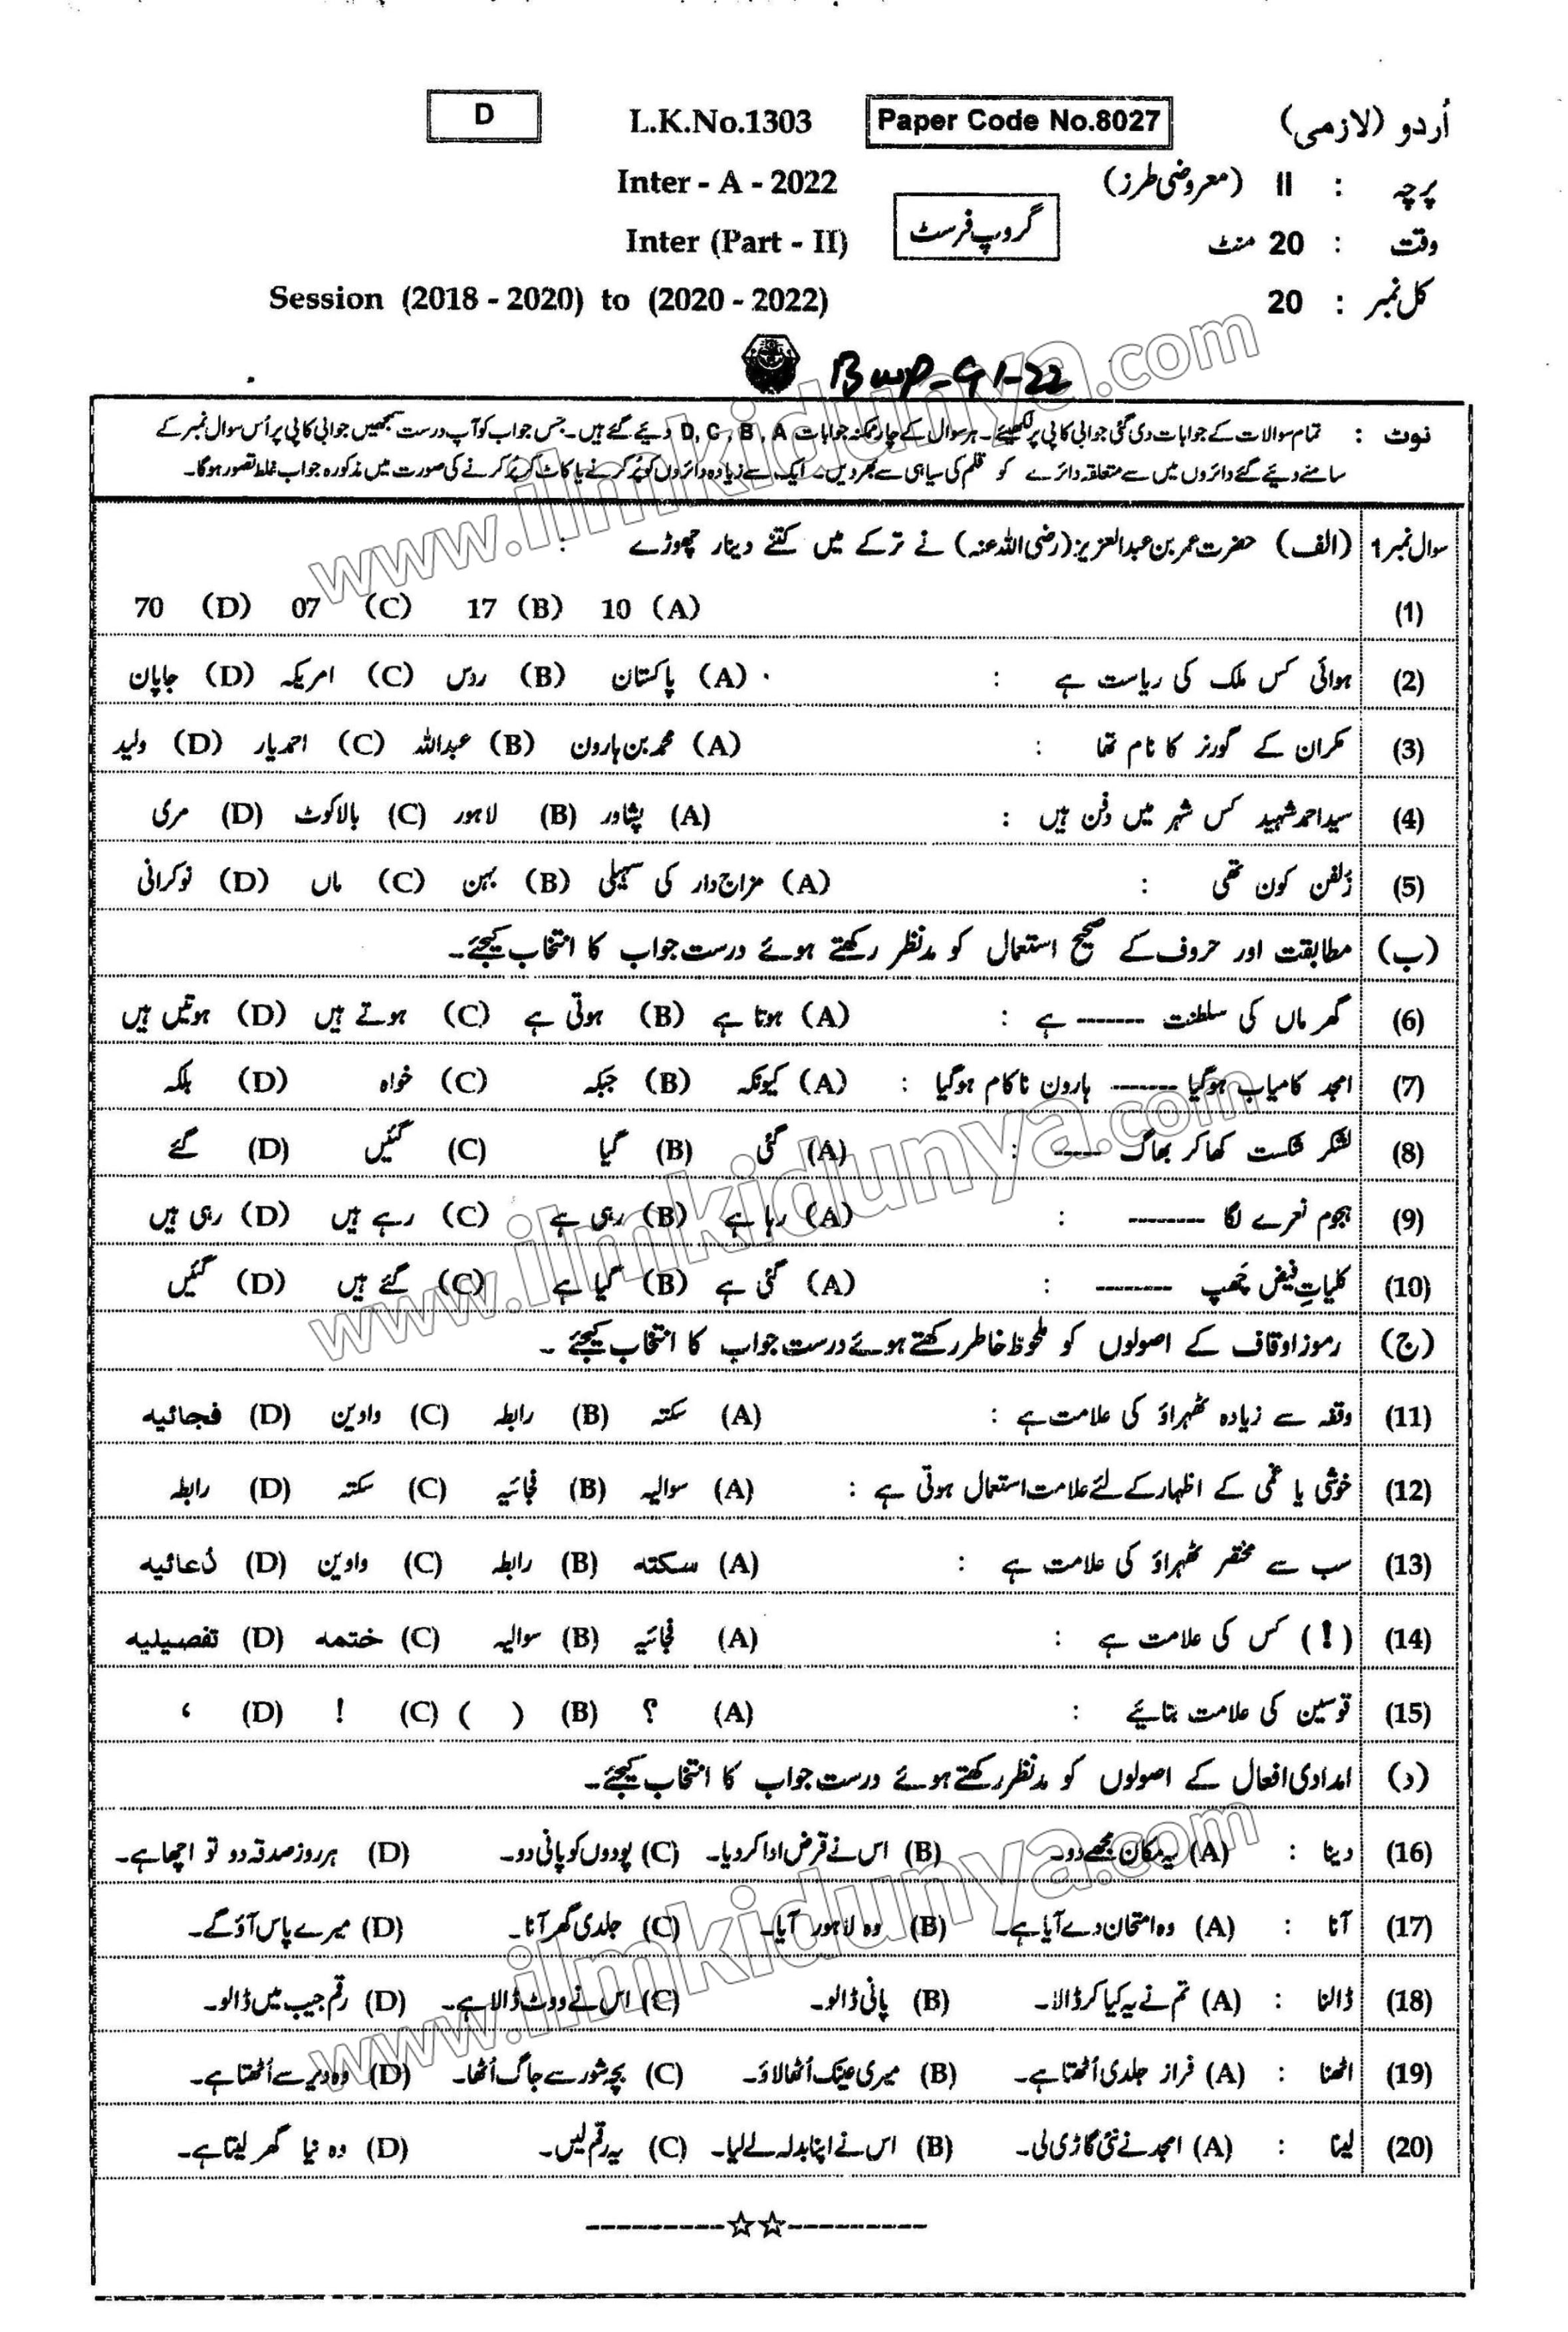 اُردو (لازمی) Paper Code No.8027 L.K.No.1303 D
پرچہ : II (معروضی طرز) Inter - A - 2022
وقت : 20 منٹ گروپ فرسٹ Inter (Part - II)
کل نمبر : 20 Session (2018 - 2020) to (2020 - 2022)
BWP-G1-22
نوٹ : تمام سوالات کے جوابات دی گئی جوابی کاپی پر لکھیئے۔ ہر سوال کے چار ممکنہ جوابات D, C, B, A دیئے گئے ہیں۔ جس جواب کو آپ درست سمجھیں جوابی کاپی پر اُس سوال نمبر کے
سامنے دیئے گئے دائروں میں سے متعلقہ دائرے کو قلم کی سیاہی سے بھر دیں۔ ایک سے زیادہ دائروں کو پُر کرنے یا کاٹ کر پُر کرنے کی صورت میں مذکورہ جواب غلط تصور ہوگا۔
سوال نمبر 1 (الف) حضرت عمر بن عبدالعزیز (رضی اللہ عنہ) نے ترکے میں کتنے دینار چھوڑے :
(1) (A) 10 (B) 17 (C) 07 (D) 70
(2) ہوائی کس ملک کی ریاست ہے : (A) پاکستان (B) روس (C) امریکہ (D) جاپان
(3) مکران کے گورنر کا نام تھا : (A) محمد بن ہارون (B) عبداللہ (C) احمد یار (D) ولید
(4) سید احمد شہید کس شہر میں دفن ہیں : (A) پشاور (B) لاہور (C) بالاکوٹ (D) مری
(5) زلفن کون تھی : (A) مزاج دار کی سہیلی (B) بہن (C) ماں (D) نوکرانی
(ب) مطابقت اور حروف کے صحیح استعمال کو مدنظر رکھتے ہوئے درست جواب کا انتخاب کیجئے۔
(6) گھر ماں کی سلطنت ------- ہے : (A) ہوتا ہے (B) ہوتی ہے (C) ہوتے ہیں (D) ہوتیں ہیں
(7) امجد کامیاب ہوگیا ------- ہارون ناکام ہوگیا : (A) کیونکہ (B) جبکہ (C) خواہ (D) بلکہ
(8) لشکر شکست کھا کر بھاگ ----- : (A) گئی (B) گیا (C) گئیں (D) گئے
(9) ہجوم نعرے لگا -------- : (A) رہا ہے (B) رہی ہے (C) رہے ہیں (D) رہی ہیں
(10) کلیاتِ فیض چَھپ -------- : (A) گئی ہے (B) گیا ہے (C) گئے ہیں (D) گئیں
(ج) رموز اوقاف کے اصولوں کو ملحوظ خاطر رکھتے ہوئے درست جواب کا انتخاب کیجئے ۔
(11) وقفہ سے زیادہ ٹھہراؤ کی علامت ہے : (A) سکتہ (B) رابطہ (C) واوین (D) فجائیہ
(12) خوشی یا غمی کے اظہار کے لئے علامت استعمال ہوتی ہے : (A) سوالیہ (B) فجائیہ (C) سکتہ (D) رابطہ
(13) سب سے مختصر ٹھہراؤ کی علامت ہے : (A) سکتہ (B) رابطہ (C) واوین (D) دُعائیہ
(14) (!) کس کی علامت ہے : (A) فجائیہ (B) سوالیہ (C) ختمہ (D) تفصیلیہ
(15) قوسین کی علامت بتائیے : (A) ؟ (B) ( ) (C) ! (D) ،
(د) امدادی افعال کے اصولوں کو مدنظر رکھتے ہوئے درست جواب کا انتخاب کیجئے۔
(16) دینا : (A) یہ مکان مجھے دو۔ (B) اس نے قرض ادا کر دیا۔ (C) پودوں کو پانی دو۔ (D) ہر روز صدقہ دو تو اچھا ہے۔
(17) آنا : (A) وہ امتحان دے آیا ہے۔ (B) وہ لاہور آیا۔ (C) جلدی گھر آنا۔ (D) میرے پاس آؤ گے۔
(18) ڈالنا : (A) تم نے یہ کیا کر ڈالا۔ (B) پانی ڈالو۔ (C) اس نے ووٹ ڈالا ہے۔ (D) رقم جیب میں ڈالو۔
(19) اٹھنا : (A) فراز جلدی اُٹھتا ہے۔ (B) میری عینک اُٹھا لاؤ۔ (C) بچہ شور سے جاگ اُٹھا۔ (D) وہ دیر سے اُٹھتا ہے۔
(20) لینا : (A) امجد نے نئی گاڑی لی۔ (B) اس نے اپنا بدلہ لے لیا۔ (C) یہ رقم لیں۔ (D) وہ نیا گھر لیتا ہے۔
www.ilmkidunya.com
www.ilmkidunya.com
www.ilmkidunya.com